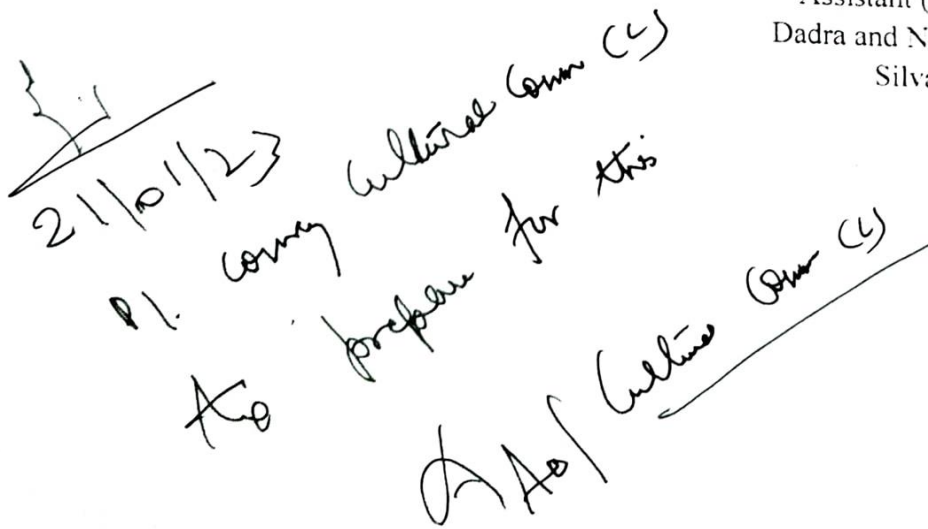 Assistant (
Dadra and N
Silva
21/01/23
Pl. convey Cultural Comm (L)
to prepare for this
AO/ Cultural Comm (L)